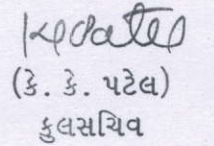 (કે. કે. પટેલ)
કુલસચિવ